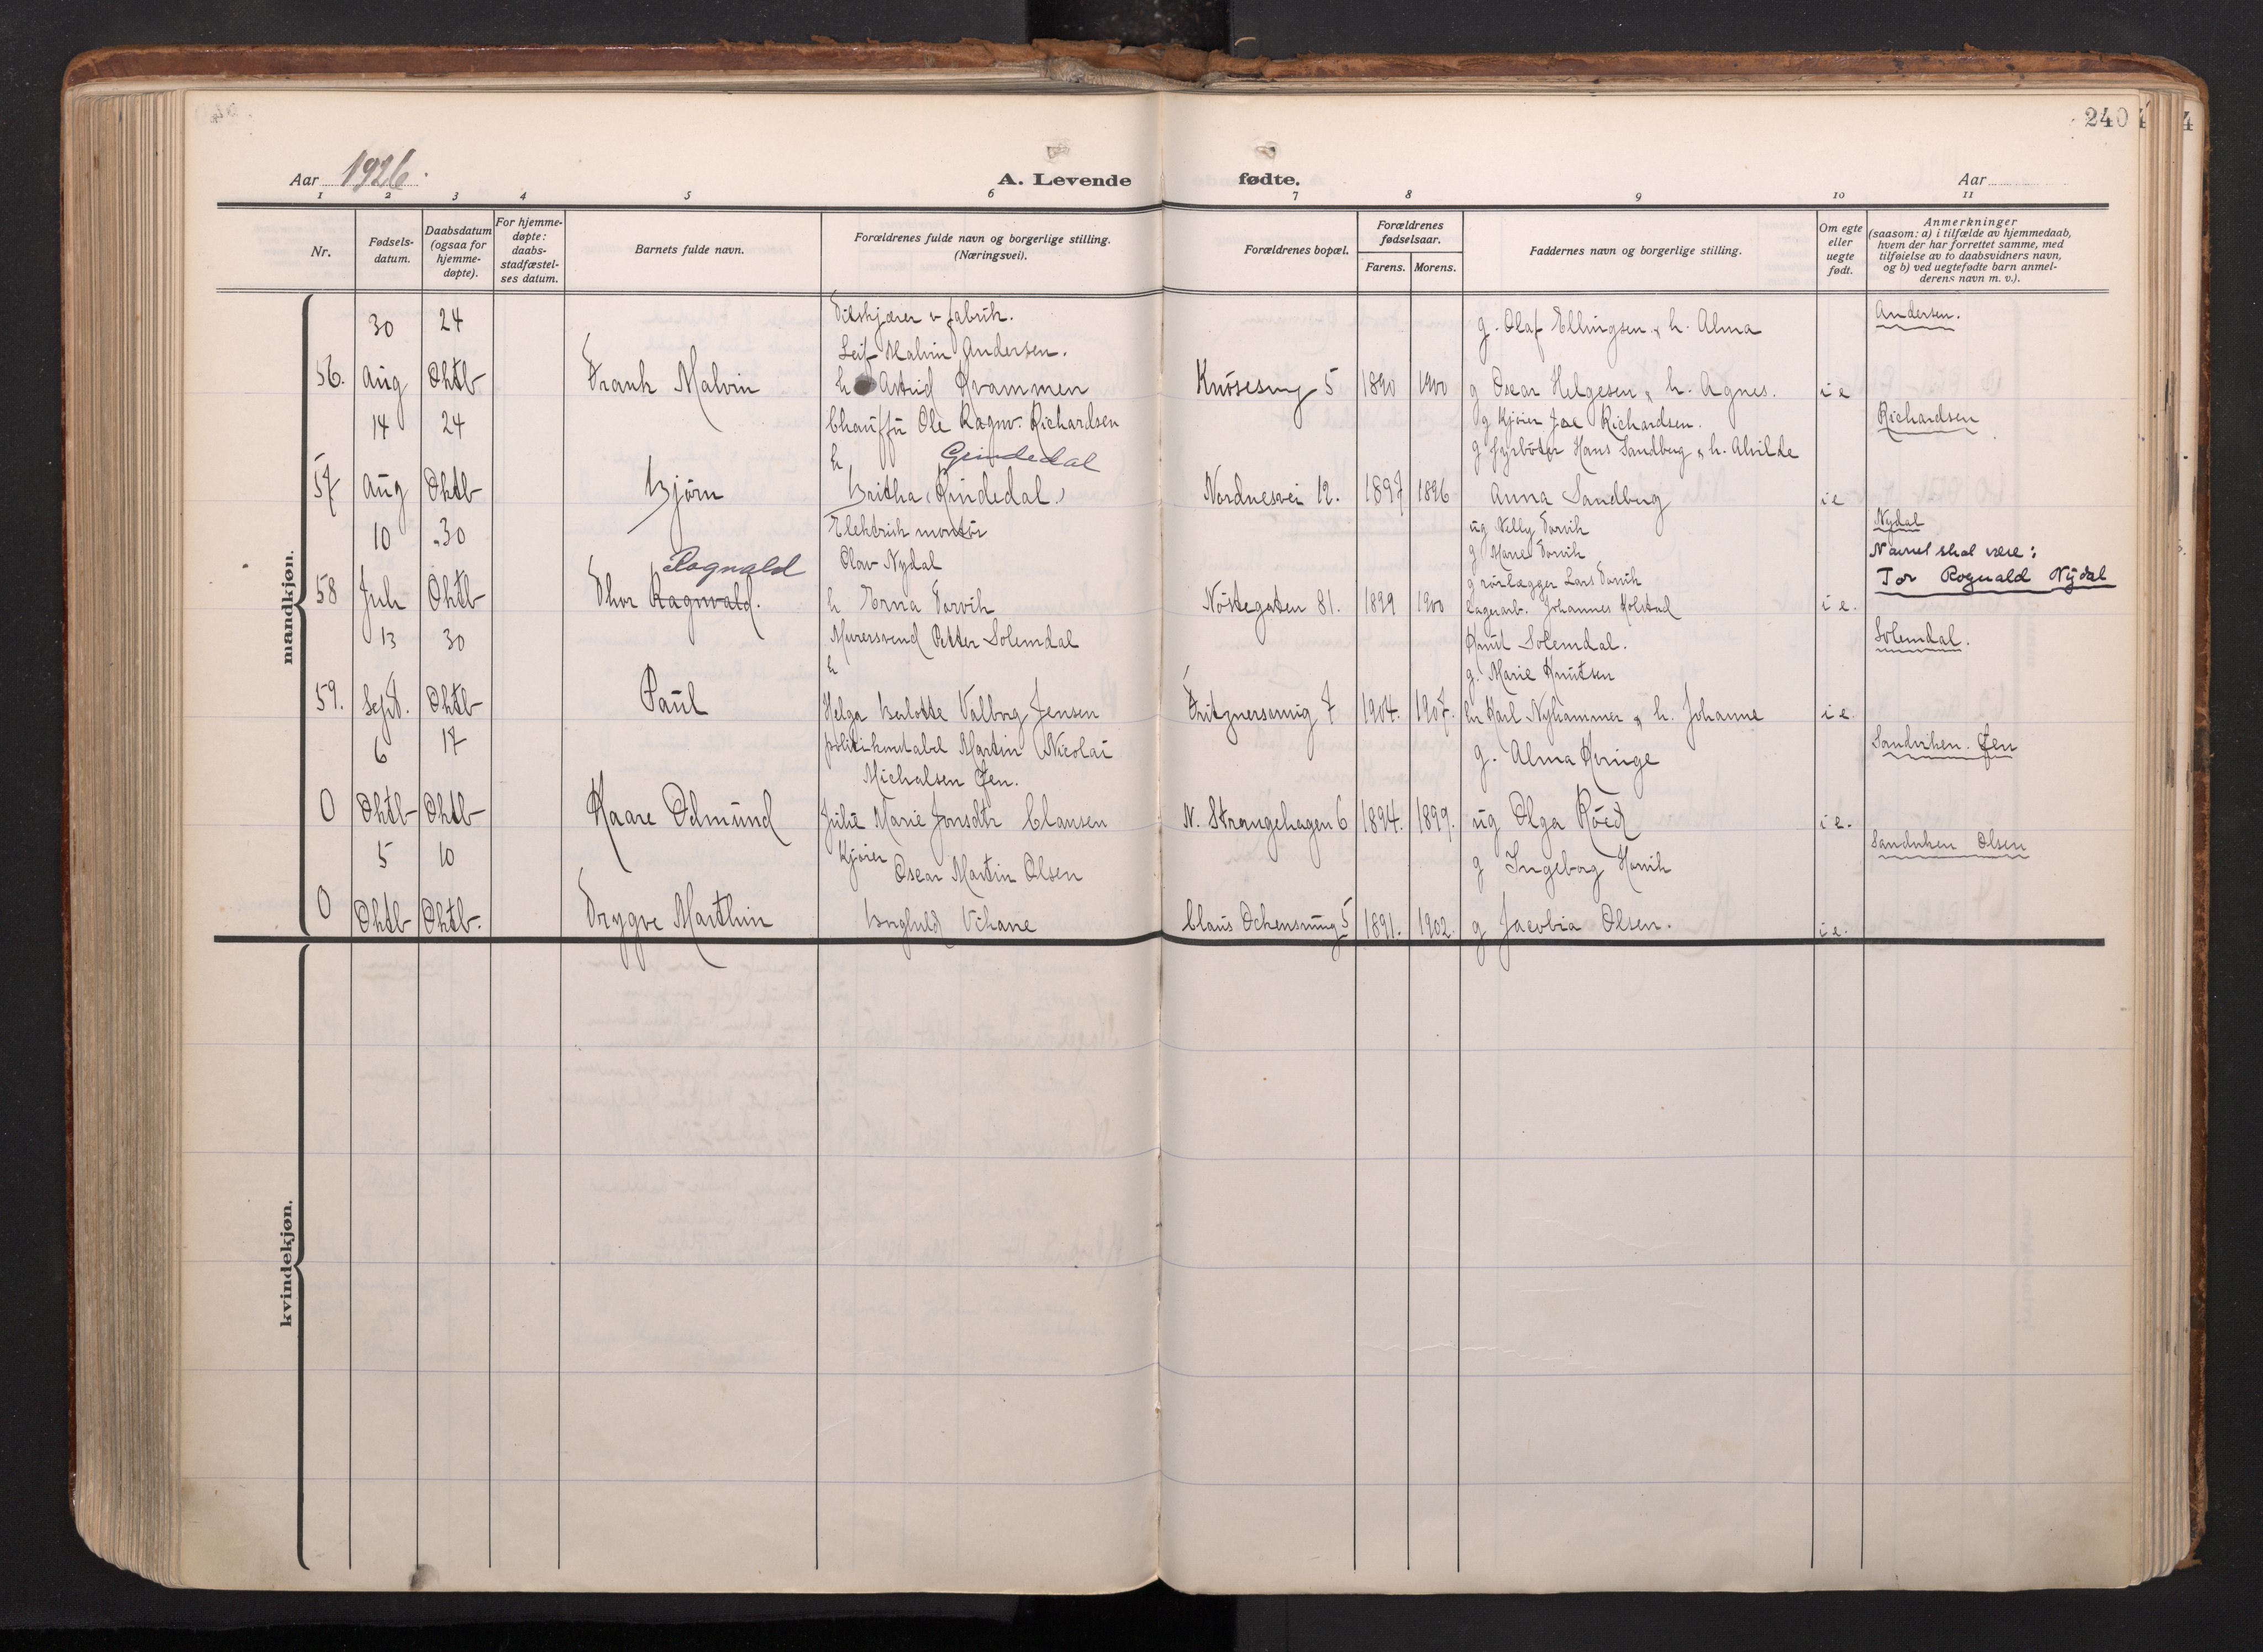 240
Aar 1926.
A. Levende fødte.
Aar
1 2 3 4 5 6 7 8 9 10 11
Nr.
Fødsels-
datum.
Daabsdatum
(ogsaa for
hjemme-
døpte).
For hjemme-
døpte:
daabs-
stadfæstel-
ses datum.
Barnets fulde navn.
Forældrenes fulde navn og borgerlige stilling.
(Næringsvei).
Forældrenes bopæl.
Forældrenes
fødselsaar.
Farens. Morens.
Faddernes navn og borgerlige stilling.
Om egte
eller
uegte
født.
Anmerkninger
(saasom: a) i tilfælde av hjemmedaab,
hvem der har forrettet samme, med
tilføielse av to daabsvidners navn,
og b) ved uegtefødte barn anmel-
derens navn m. v.).
mandkjøn.
30 24 Tilskjærer v fabrik. g. Olaf Ellingsen & h. Alma Andersen.
Leif Malvin Andersen.
56. Aug Oktb Frank Malvin h Astrid Kvammen Knøsesmug 5 1890 1900 g Oscar Helgesen & h. Agnes. i e
14 24 Chauffør Ole Ragnv. Richardsen g Kjører Richardsen. Richardsen
h Grindedal g Fyrbøter Hans Sandberg & h. Alvilde
57 Aug Oktb Bjørn Britha (Rindedal.) Nordnesvei 12. 1897 1896 Anna Sandberg i e
10 30 Elektrisk montør ug Nelly Torvik Nydal
Rognald Olav Nydal g Marie Torvik Navnet skal være:
g rørlægger Lars Torvik Tor Rognald Nydal
58 Juli Oktb Thor Ragnvald. h Erna Torvik Nøstegaten 81. 1899 1900 Lagerarb. Johannes Kolstad i e.
13 30 Murersvend Petter Solemdal Knut Solemdal. Solemdal.
h g. Marie Knutsen
59. Sept. Oktb Paul Helga Berlotte Valborg Jensen Fritznersmug 7 1904. 1907. hr Karl Nyhammer & h. Johanne i e.
6 17 politikonstabel Martin Nicolai g. Alma Kvinge Sandviken. Øen
Michalsen Øen.
0 Oktb Oktb Kaare Edmund Julie Marie Jonsdtr Clausen N. Strangehagen 6 1894. 1899. ug Olga Røed i e.
5 10 Kjører Oscar Martin Olsen g Ingeborg Hauvik Sandviken Olsen
0 Oktb Oktb. Trygve Marthin Borghild Vikane Claus Ockensmug 5 1891. 1902. g Jacobia Olsen. i e.
kvindekjøn.